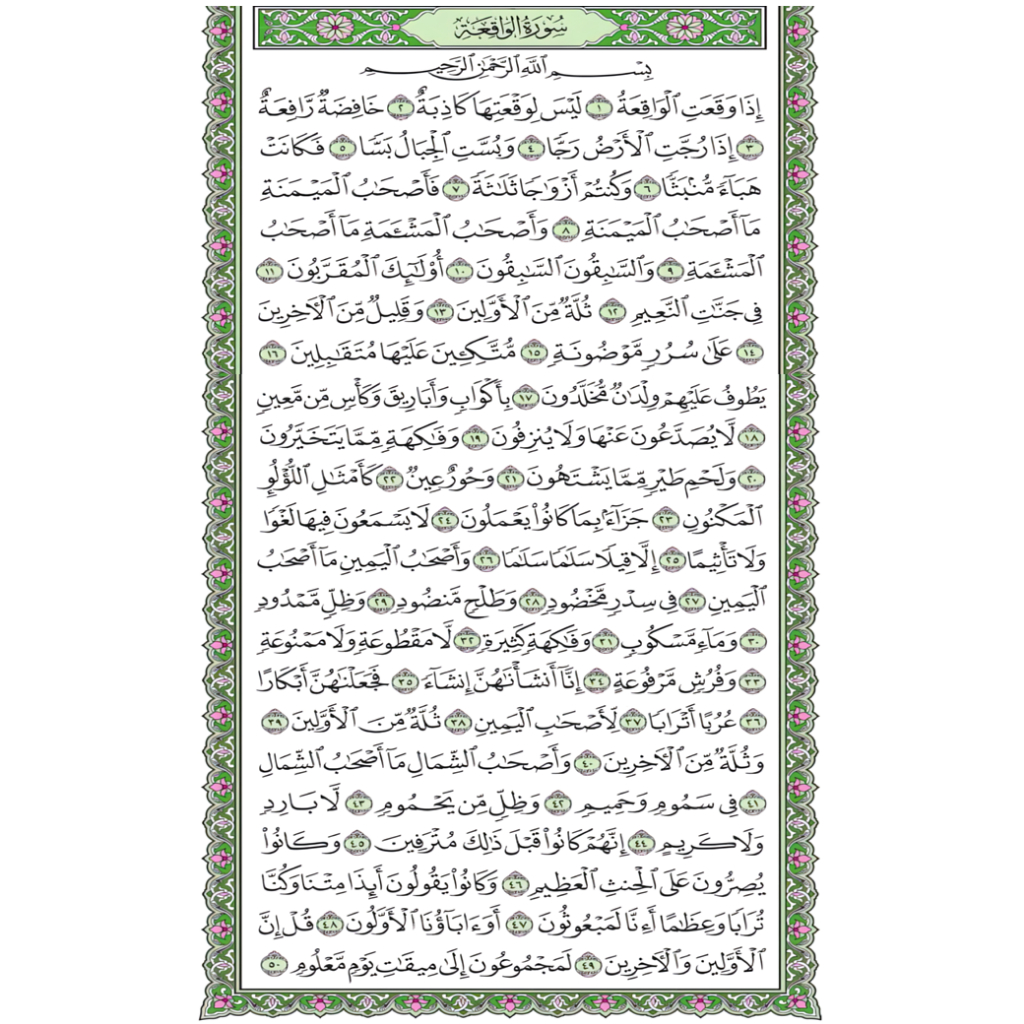 سُورَةُ الوَاقِعَة
بِسْمِ ٱللَّهِ ٱلرَّحْمَٰنِ ٱلرَّحِيمِ
إِذَا وَقَعَتِ ٱلْوَاقِعَةُ ١ لَيْسَ لِوَقْعَتِهَا كَاذِبَةٌ ٢ خَافِضَةٌ رَّافِعَةٌ
٣ إِذَا رُجَّتِ ٱلْأَرْضُ رَجًّا ٤ وَبُسَّتِ ٱلْجِبَالُ بَسًّا ٥ فَكَانَتْ
هَبَآءً مُّنۢبَثًّا ٦ وَكُنتُمْ أَزْوَٰجًا ثَلَٰثَةً ٧ فَأَصْحَٰبُ ٱلْمَيْمَنَةِ
مَآ أَصْحَٰبُ ٱلْمَيْمَنَةِ ٨ وَأَصْحَٰبُ ٱلْمَشْـَٔمَةِ مَآ أَصْحَٰبُ
ٱلْمَشْـَٔمَةِ ٩ وَٱلسَّٰبِقُونَ ٱلسَّٰبِقُونَ ١٠ أُو۟لَٰٓئِكَ ٱلْمُقَرَّبُونَ ١١
فِى جَنَّٰتِ ٱلنَّعِيمِ ١٢ ثُلَّةٌ مِّنَ ٱلْأَوَّلِينَ ١٣ وَقَلِيلٌ مِّنَ ٱلْـَٔاخِرِينَ
١٤ عَلَىٰ سُرُرٍ مَّوْضُونَةٍ ١٥ مُّتَّكِـِٔينَ عَلَيْهَا مُتَقَٰبِلِينَ ١٦
يَطُوفُ عَلَيْهِمْ وِلْدَٰنٌ مُّخَلَّدُونَ ١٧ بِأَكْوَابٍ وَأَبَارِيقَ وَكَأْسٍ مِّن مَّعِينٍ
١٨ لَّا يُصَدَّعُونَ عَنْهَا وَلَا يُنزِفُونَ ١٩ وَفَٰكِهَةٍ مِّمَّا يَتَخَيَّرُونَ
٢٠ وَلَحْمِ طَيْرٍ مِّمَّا يَشْتَهُونَ ٢١ وَحُورٌ عِينٌ ٢٢ كَأَمْثَٰلِ ٱللُّؤْلُؤِ
ٱلْمَكْنُونِ ٢٣ جَزَآءًۢ بِمَا كَانُوا۟ يَعْمَلُونَ ٢٤ لَا يَسْمَعُونَ فِيهَا لَغْوًا
وَلَا تَأْثِيمًا ٢٥ إِلَّا قِيلًا سَلَٰمًا سَلَٰمًا ٢٦ وَأَصْحَٰبُ ٱلْيَمِينِ مَآ أَصْحَٰبُ
ٱلْيَمِينِ ٢٧ فِى سِدْرٍ مَّخْضُودٍ ٢٨ وَطَلْحٍ مَّنضُودٍ ٢٩ وَظِلٍّ مَّمْدُودٍ
٣٠ وَمَآءٍ مَّسْكُوبٍ ٣١ وَفَٰكِهَةٍ كَثِيرَةٍ ٣٢ لَّا مَقْطُوعَةٍ وَلَا مَمْنُوعَةٍ
٣٣ وَفُرُشٍ مَّرْفُوعَةٍ ٣٤ إِنَّآ أَنشَأْنَٰهُنَّ إِنشَآءً ٣٥ فَجَعَلْنَٰهُنَّ أَبْكَارًا
٣٦ عُرُبًا أَتْرَابًا ٣٧ لِّأَصْحَٰبِ ٱلْيَمِينِ ٣٨ ثُلَّةٌ مِّنَ ٱلْأَوَّلِينَ ٣٩
وَثُلَّةٌ مِّنَ ٱلْـَٔاخِرِينَ ٤٠ وَأَصْحَٰبُ ٱلشِّمَالِ مَآ أَصْحَٰبُ ٱلشِّمَالِ
٤١ فِى سَمُومٍ وَحَمِيمٍ ٤٢ وَظِلٍّ مِّن يَحْمُومٍ ٤٣ لَّا بَارِدٍ
وَلَا كَرِيمٍ ٤٤ إِنَّهُمْ كَانُوا۟ قَبْلَ ذَٰلِكَ مُتْرَفِينَ ٤٥ وَكَانُوا۟
يُصِرُّونَ عَلَى ٱلْحِنثِ ٱلْعَظِيمِ ٤٦ وَكَانُوا۟ يَقُولُونَ أَئِذَا مِتْنَا وَكُنَّا
تُرَابًا وَعِظَٰمًا أَءِنَّا لَمَبْعُوثُونَ ٤٧ أَوَءَابَآؤُنَا ٱلْأَوَّلُونَ ٤٨ قُلْ إِنَّ
ٱلْأَوَّلِينَ وَٱلْـَٔاخِرِينَ ٤٩ لَمَجْمُوعُونَ إِلَىٰ مِيقَٰتِ يَوْمٍ مَّعْلُومٍ ٥٠